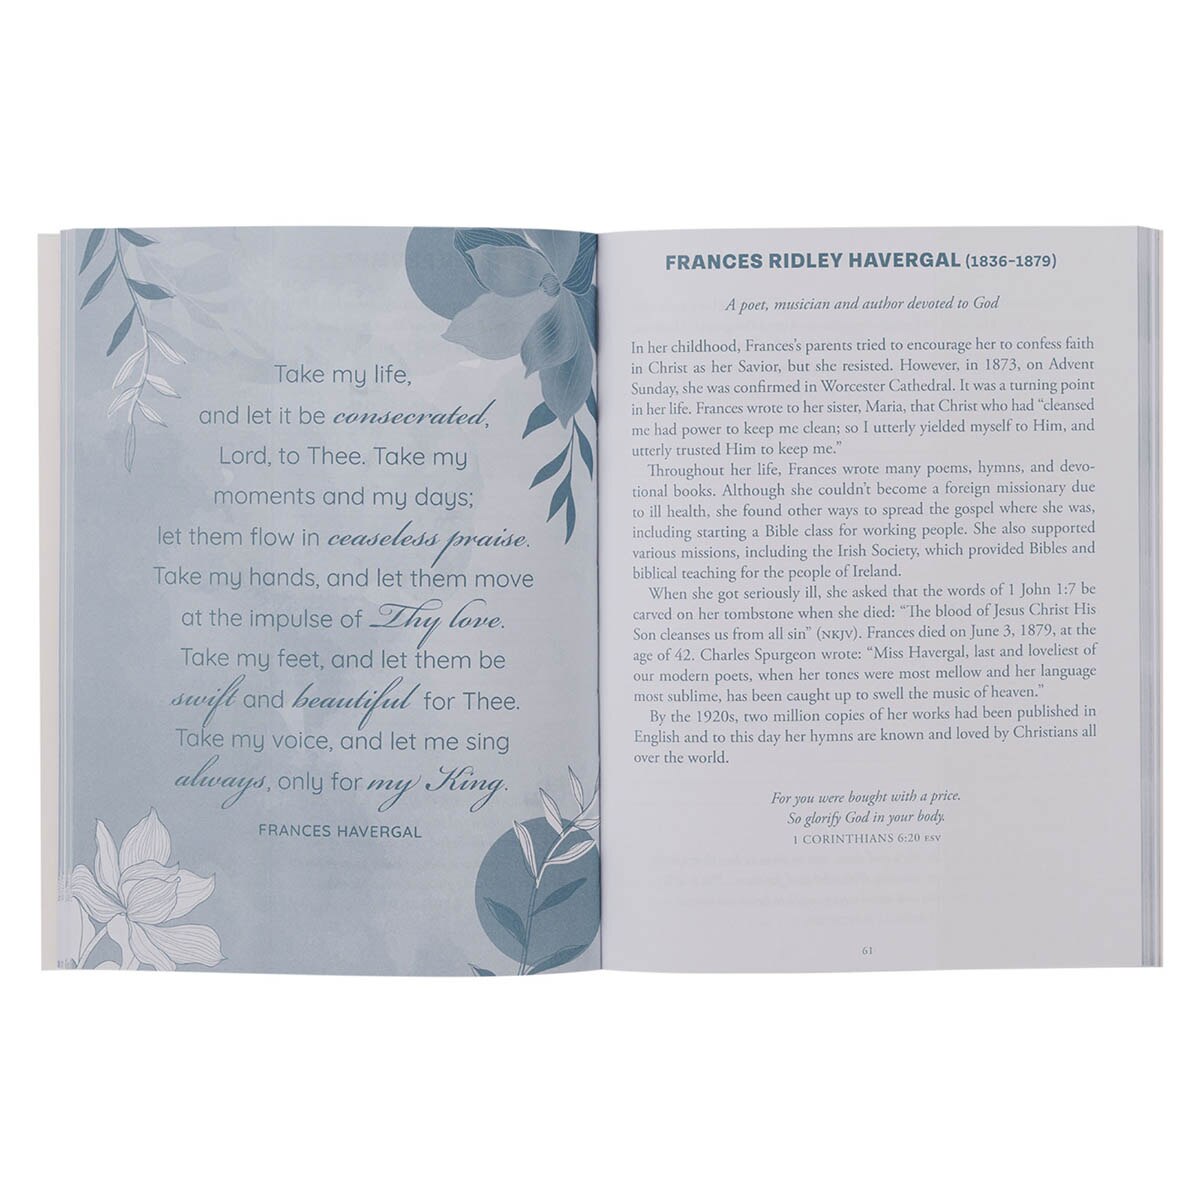 Take my life,
and let it be consecrated,
Lord, to Thee. Take my
moments and my days;
let them flow in ceaseless praise.
Take my hands, and let them move
at the impulse of Thy love.
Take my feet, and let them be
swift and beautiful for Thee.
Take my voice, and let me sing
always, only for my King.
FRANCES HAVERGAL
FRANCES RIDLEY HAVERGAL (1836–1879)
A poet, musician and author devoted to God
In her childhood, Frances’s parents tried to encourage her to confess faith
in Christ as her Savior, but she resisted. However, in 1873, on Advent
Sunday, she was confirmed in Worcester Cathedral. It was a turning point
in her life. Frances wrote to her sister, Maria, that Christ who had “cleansed
me had power to keep me clean; so I utterly yielded myself to Him, and
utterly trusted Him to keep me.”
Throughout her life, Frances wrote many poems, hymns, and devo-
tional books. Although she couldn’t become a foreign missionary due
to ill health, she found other ways to spread the gospel where she was,
including starting a Bible class for working people. She also supported
various missions, including the Irish Society, which provided Bibles and
biblical teaching for the people of Ireland.
When she got seriously ill, she asked that the words of 1 John 1:7 be
carved on her tombstone when she died: “The blood of Jesus Christ His
Son cleanses us from all sin” (NKJV). Frances died on June 3, 1879, at the
age of 42. Charles Spurgeon wrote: “Miss Havergal, last and loveliest of
our modern poets, when her tones were most mellow and her language
most sublime, has been caught up to swell the music of heaven.”
By the 1920s, two million copies of her works had been published in
English and to this day her hymns are known and loved by Christians all
over the world.
For you were bought with a price.
So glorify God in your body.
1 CORINTHIANS 6:20 ESV
61